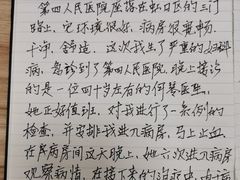 第四人民医院座落在虹口区的三门
路上，它环境很好，病房很宽畅
干净，舒适，这次我生了严重的妇科
病，急诊到了第四人民医院，晚上接诊
的是一位四十岁左右的何医生，
她正好值班，对我进行了一系列的
检查，并安排我进入病房，马上止血，
在病房间这天晚上，她六次进入病房
观察病情，在接下来的治疗中